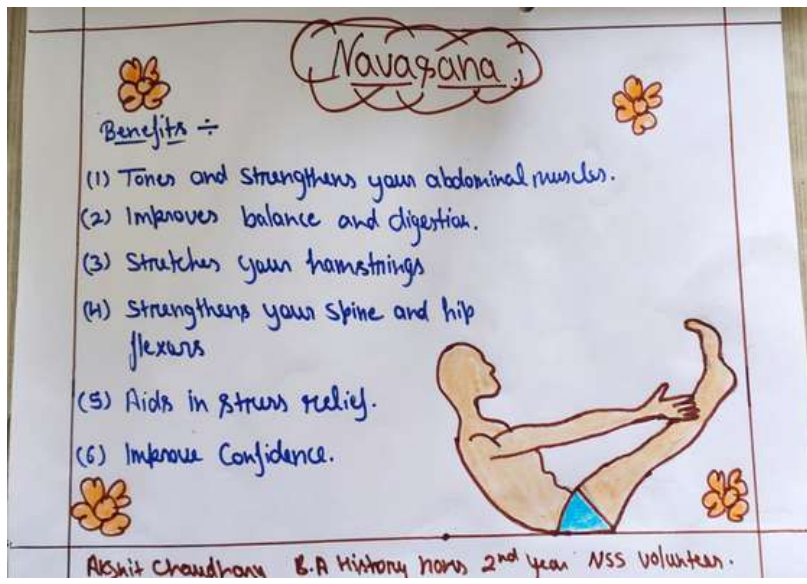 Navasana.
Benefits ÷
(1) Tones and strengthens your abdominal muscles.
(2) Improves balance and digestion.
(3) Stretches your hamstrings
(4) Strengthens your spine and hip
flexors
(5) Aids in stress relief.
(6) Improve Confidence.
Akshit Chaudhary B.A History hons 2nd year NSS volunteer.